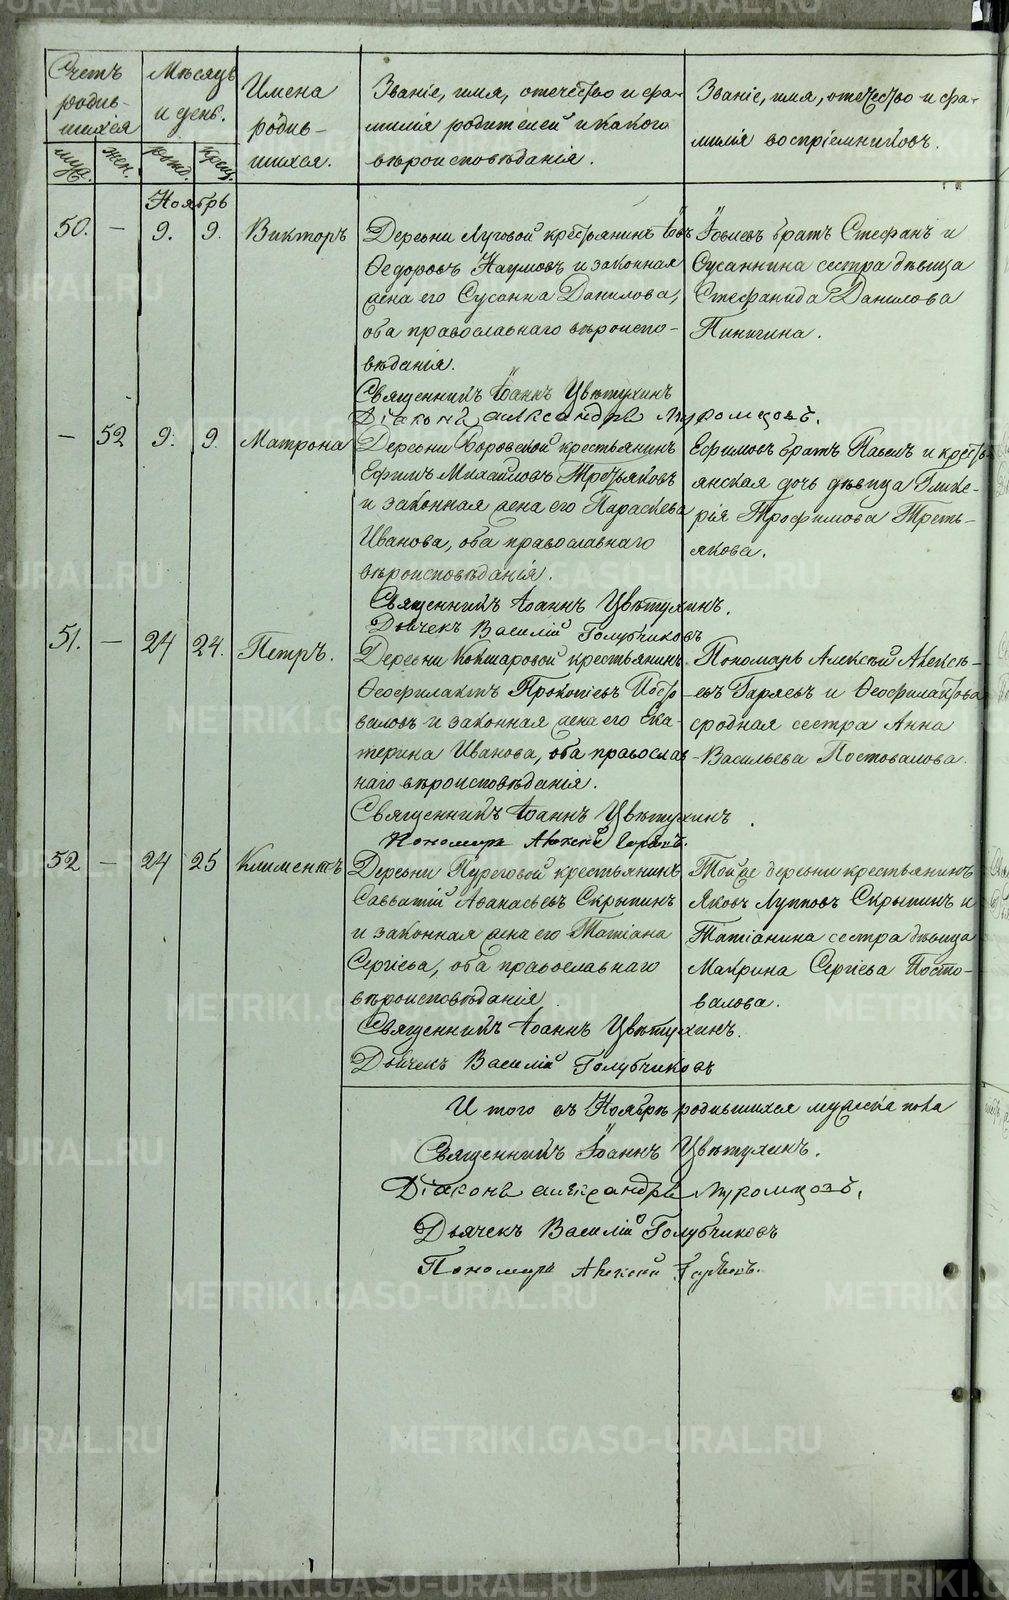 METRIKI.GASO-URAL.RU
Счетъ родив- шихся
Мѣсяцъ и день.
Имена родив- шихся.
Званіе, имя, отечество и фа-
милія родителей и какого
вѣроисповѣданія.
Званіе, имя, отечество и фа-
милія воспріемниковъ.
муж. жен. рожд. крещ.
Ноябрь
50. — 9. 9. Викторъ
Деревни Луговой крестьянинъ Іовъ
Ѳедоровъ Наумовъ и законная
жена его Сусанна Данилова,
оба православнаго вѣроиспо-
вѣданія.
Іовлевъ братъ Стефанъ и
Сусаннина сестра дѣвица
Стефанида Данилова
Пинигина.
Священникъ Іоаннъ Цвѣтухинъ
Діаконъ Александръ Муромцовъ.
— 52 9. 9. Матрона
Деревни Боровской крестьянинъ
Ефимъ Михайловъ Третьяковъ
и законная жена его Параскева
Иванова, оба православнаго
вѣроисповѣданія.
Ефимовъ братъ Павелъ и кресть-
янская дочь дѣвица Глике-
рія Трофимова Треть-
якова.
Священникъ Іоаннъ Цвѣтухинъ.
Дьячекъ Василій Голубчиковъ
51. — 24 24. Петръ.
Деревни Кокшаровой крестьянинъ
Ѳеофилактъ Прокопіевъ Посто-
валовъ и законная жена его Ека-
терина Иванова, оба православ-
наго вѣроисповѣданія.
Пономарь Алексѣй Алексѣ-
евъ Гаряевъ и Ѳеофилактова
сродная сестра Анна
Васильева Постовалова.
Священникъ Іоаннъ Цвѣтухинъ
Пономарь Алексѣй Гаряевъ.
52 — 24 25 Климентъ
Деревни Пуреговой крестьянинъ
Савватій Аѳанасьевъ Скрыпинъ
и законная жена его Татіана
Сергіева, оба православнаго
вѣроисповѣданія
Той же деревни крестьянинъ
Яковъ Лупповъ Скрыпинъ и
Татіанина сестра дѣвица
Макрина Сергіева Посто-
валова.
Священникъ Іоаннъ Цвѣтухинъ.
Дьячекъ Василій Голубчиковъ
Итого въ Ноябрѣ родившихся мужеска пола
Священникъ Іоаннъ Цвѣтухинъ.
Діаконъ Александръ Муромцовъ.
Дьячекъ Василій Голубчиковъ
Пономарь Алексѣй Гаряевъ.